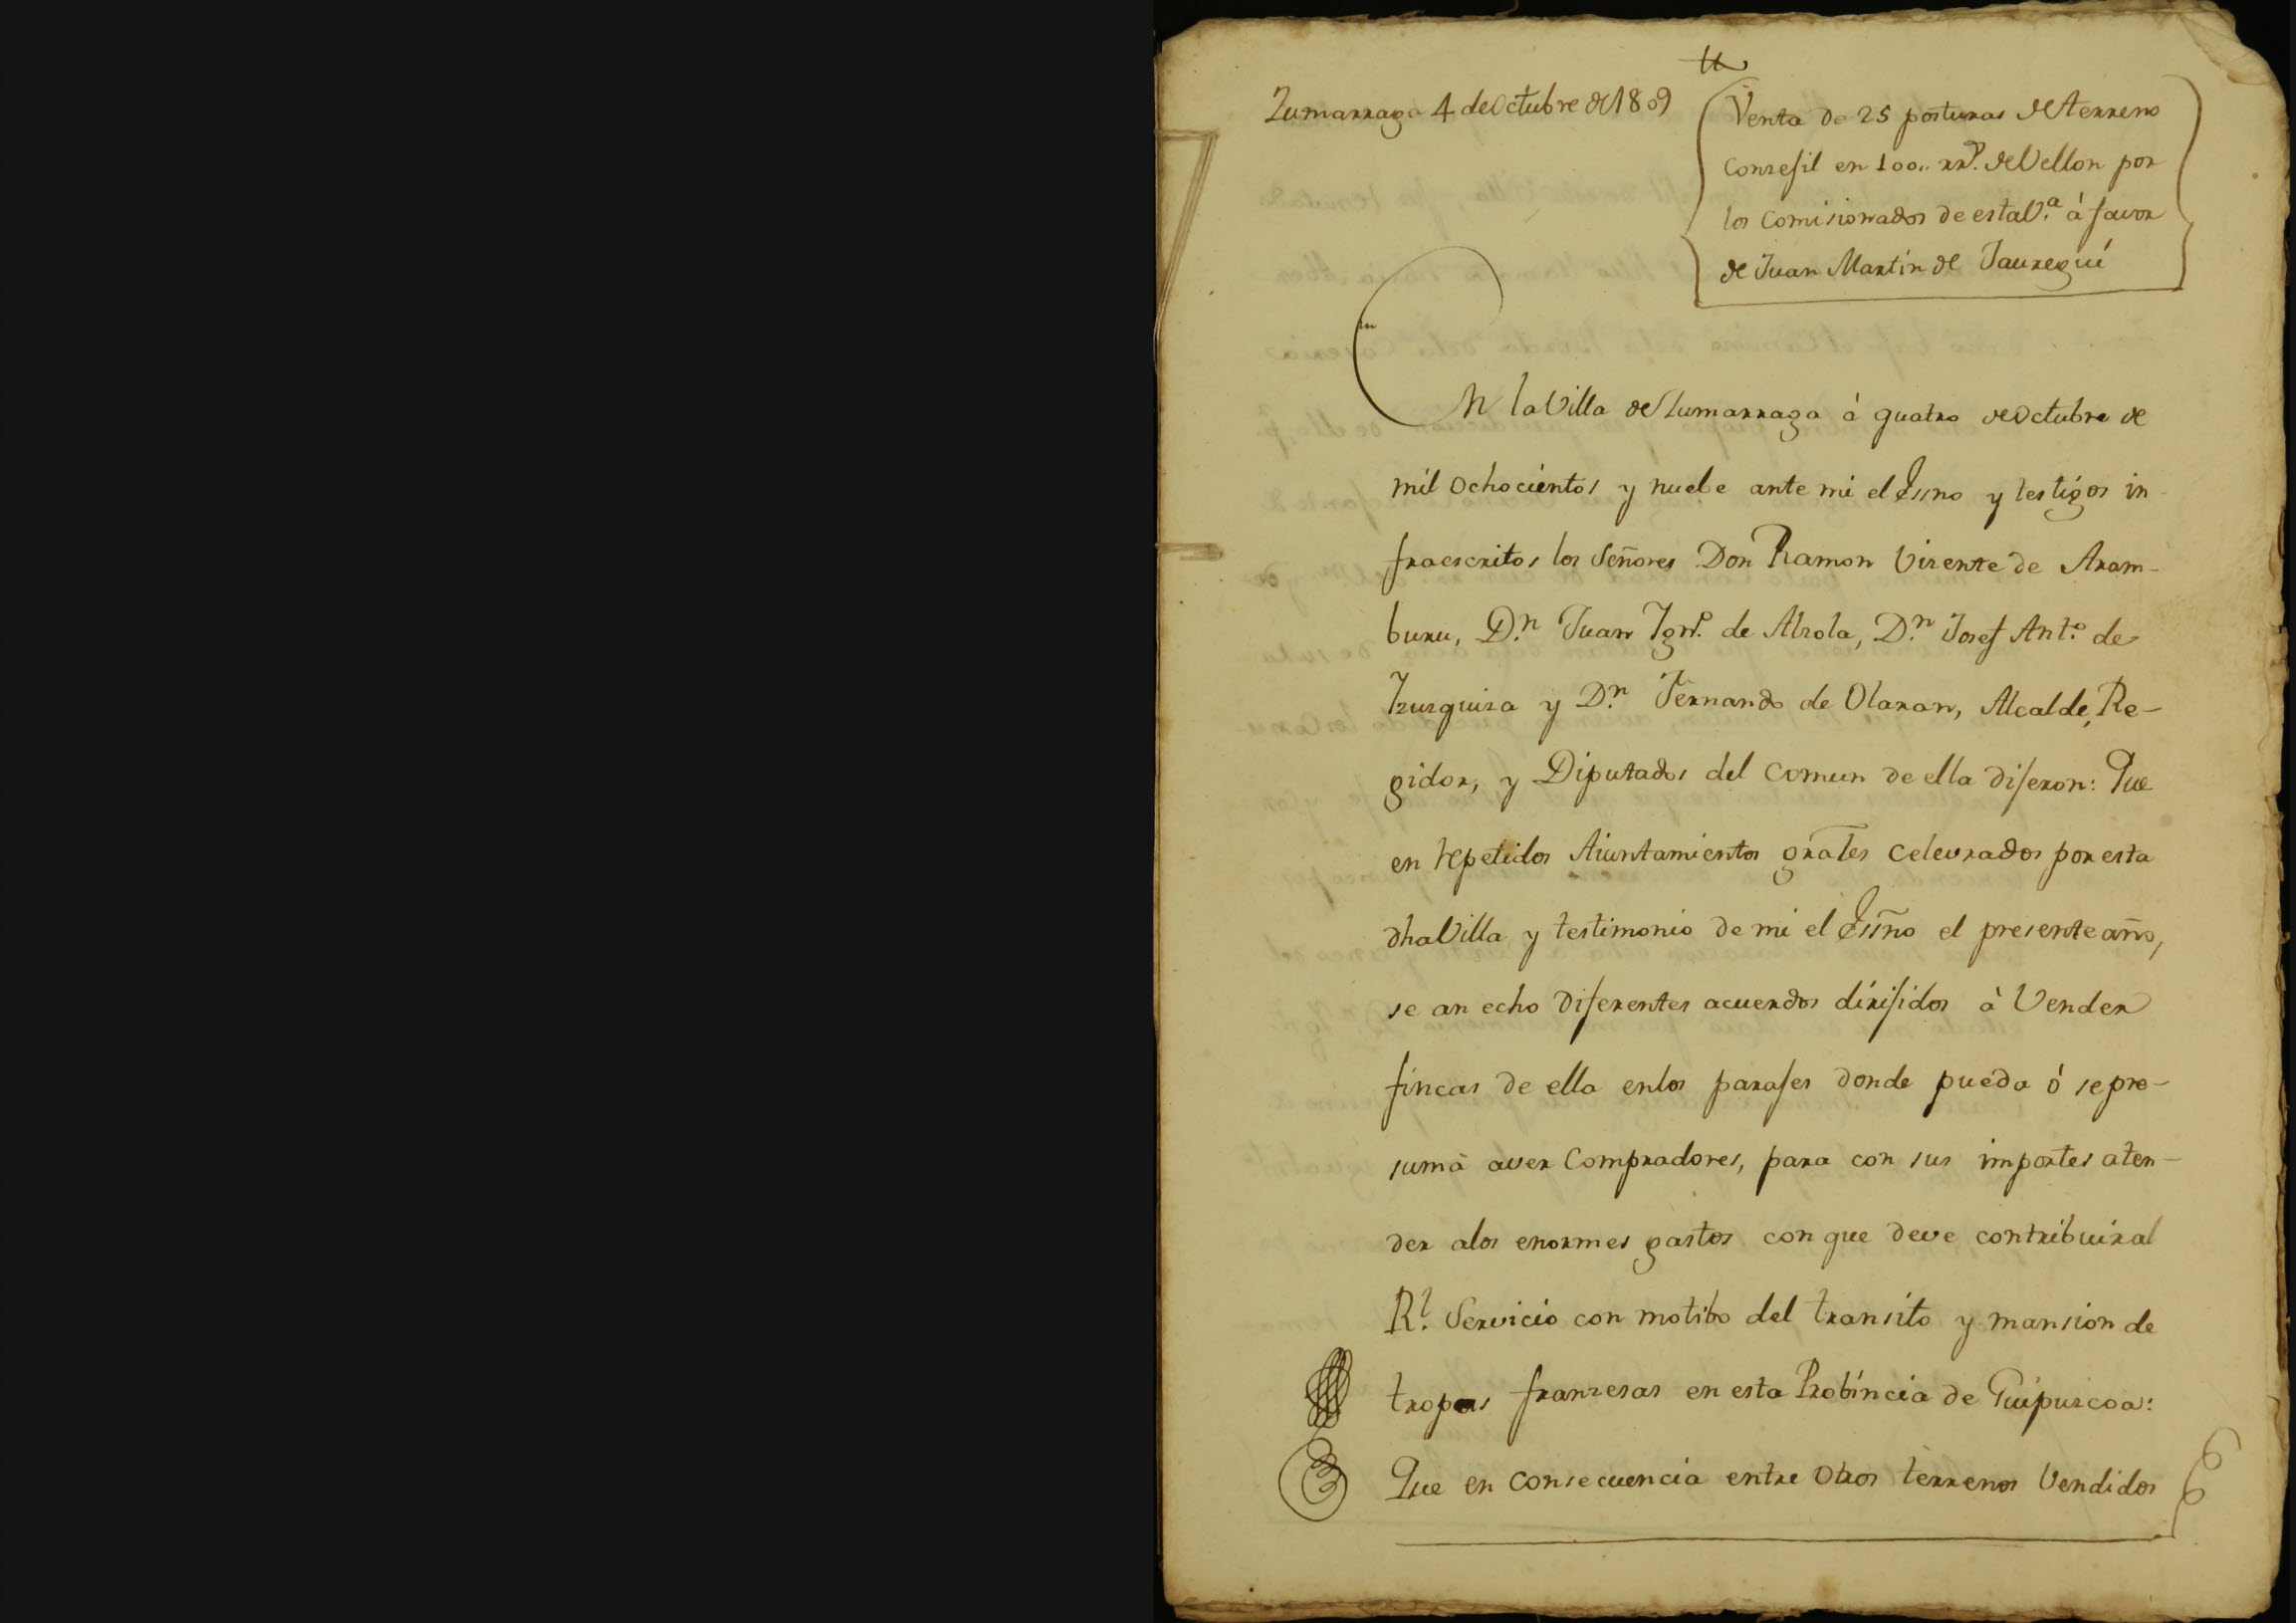 Zumarraga 4 de Octubre de 1809
Venta de 25 posturas de terreno
conzejil en 100,, rr.s de Vellon por
los comisionados de esta V.a à favor
de Juan Martin de Jauregui
En la Villa de Zumarraga à quatro de Octubre de
mil ochocientos y nuebe ante mi el Essno y testigos in
fraescritos los Señores Don Ramon Vizente de Aram-
buru, D.n Juan Ygn.o de Alzola, D.n Josef Ant.o de
Yzurquiza y D.n Fernando de Olaran, Alcalde, Re-
gidor, y Diputados del comun de ella dijeron: Que
en repetidos Aiuntamientos grāles celevrados por esta
dha Villa y testimonio de mi el Essño el presente año,
se an echo diferentes acuerdos dirijidos à Vender
fincas de ella en los parajes donde pueda ò se pre-
suma aver Compradores, para con sus importes aten-
der a los enormes gastos con que deve contribuir al
R.l Servicio con motibo del transito y mansion de
tropas franzesas en esta Probincia de Guipuzcoa:
Que en consecuencia entre otros terrenos Vendidos